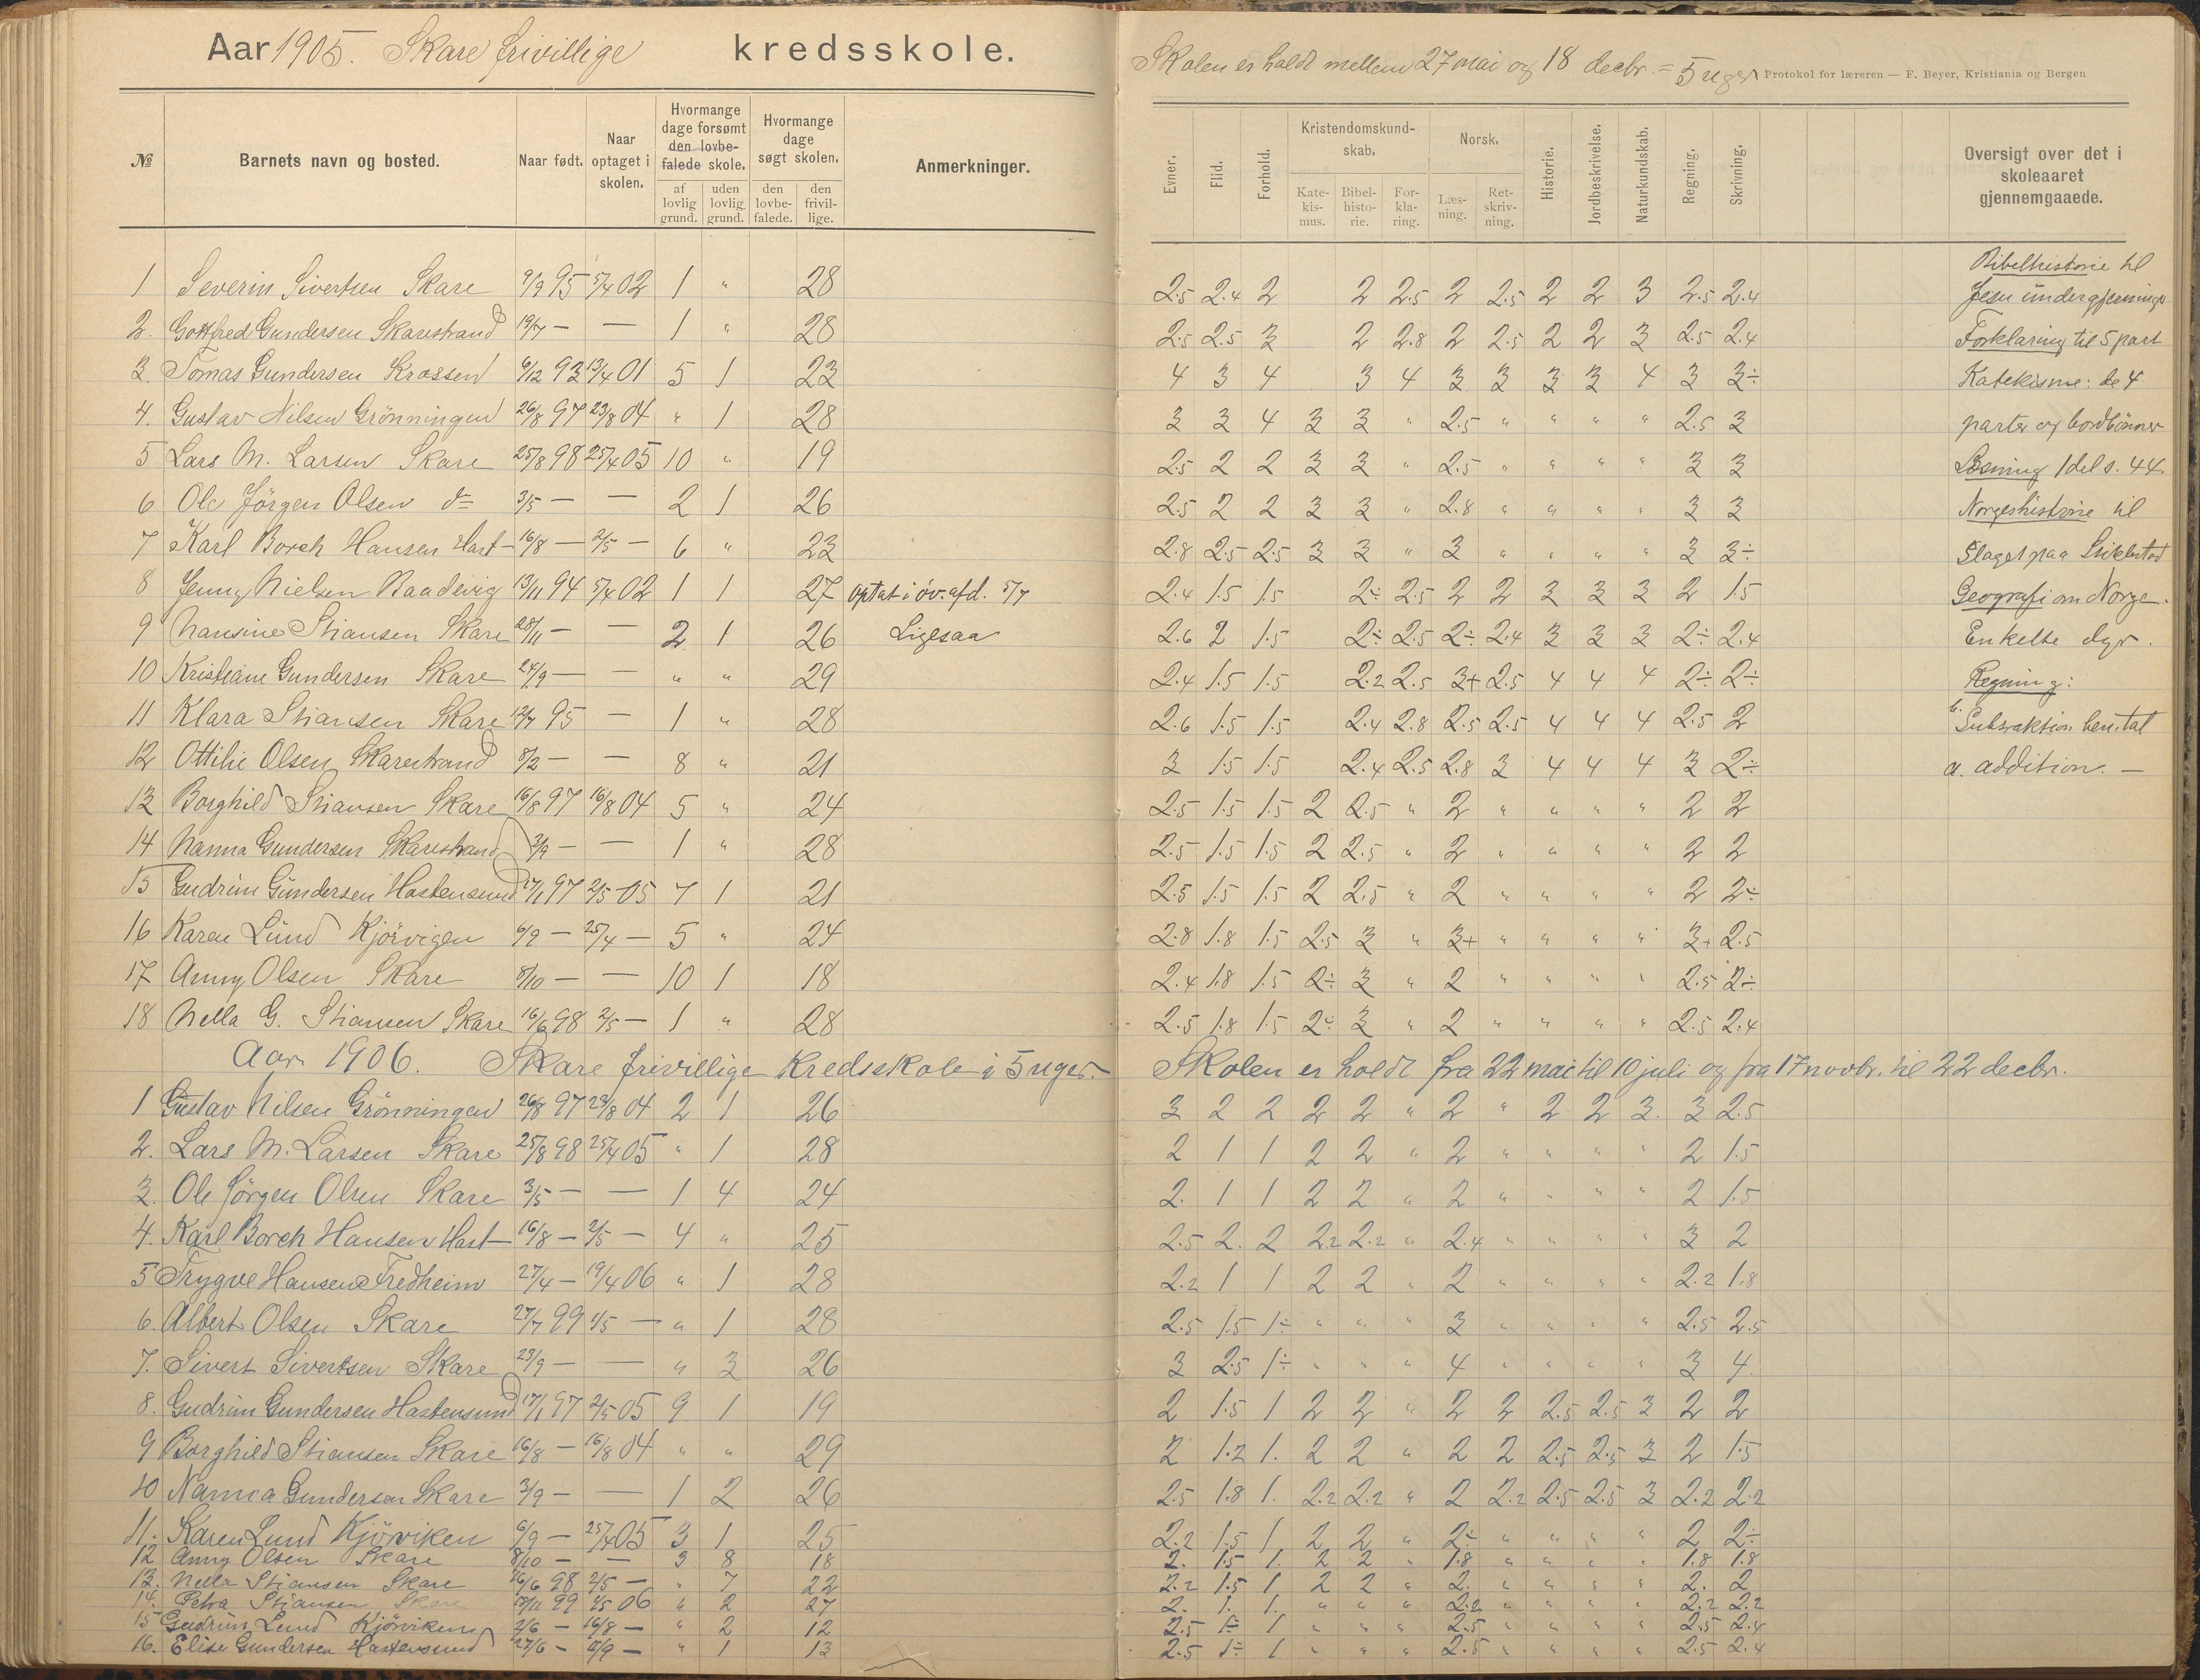 Aar 1905. Skare frivillige kredsskole.
Skolen er holdt mellem 27 mai og 18 decbr. = 5 uger
Protokol for læreren — F. Beyer, Kristiania og Bergen
№ Barnets navn og bosted. Naar født. Naar optaget i skolen. Hvormange dage forsømt den lovbefalede skole. af lovlig grund. uden lovlig grund. Hvormange dage søgt skolen. den lovbefalede. den frivillige. Anmerkninger.
Evner. Flid. Forhold. Kristendomskundskab. Katekismus. Bibelhistorie. Forklaring. Norsk. Læsning. Retskrivning. Historie. Jordbeskrivelse. Naturkundskab. Regning. Skrivning. Oversigt over det i skoleaaret gjennemgaaede.
Bibelhistorie til
1 Severin Sivertsen Skare 9/9 95 5/4 02 1 " 28 2.5 2.4 2 2 2.5 2 2.5 2 2 3 2.5 2.4 Jesu undergjerninger
2. Gottfred Gundersen Skarestrand 19/7 — — 1 " 28 2.5 2.5 3 2 2.8 2 2.5 2 2 3 2.5 2.4 Forklaring til 5 part
3. Tomas Gundersen Krossen 6/12 93 13/4 01 5 1 23 4 3 4 3 4 3 3 3 3 4 3 3÷ Katekisme: de 4
4. Gustav Nilsen Grönningen 26/8 97 23/8 04 " 1 28 3 3 4 3 3 " 2.5 " " " " 2.5 3 parter og bordbönner
5 Lars M. Larsen Skare 25/8 98 25/4 05 10 " 19 2.5 2 2 3 3 " 2.5 " " " " 3 3 Læsning 1 del s. 44.
6 Ole Jörgen Olsen do 3/5 — — 2 1 26 2.5 2 2 3 3 " 2.8 " " " " 3 3 Norgeshistorie til
7 Karl Borch Hansen Hast 16/8 — 2/5 — 6 " 23 2.8 2.5 2.5 3 3 " 3 " " " " 3 3÷ Slaget paa Stiklestad
8 Jenny Nielsen Baadevig 13/11 94 5/4 02 1 1 27 optat i öv. afd. 5/7 2.4 1.5 1.5 2÷ 2.5 2 2 3 3 3 2 1.5 Geografi om Norge.
9 Nansine Stiansen Skare 28/11 — — 2 1 26 Ligesaa 2.6 2 1.5 2÷ 2.5 2÷ 2.4 3 3 3 2÷ 2.4 Enkelte dyr.
10 Kristiane Gundersen Skare 24/9 — — " " 29 2.4 1.5 1.5 2.2 2.5 3+ 2.5 4 4 4 2÷ 2÷ Regning:
11 Klara Stiansen Skare 12/7 95 — 1 " 28 2.6 1.5 1.5 2.4 2.8 2.5 2.5 4 4 4 2.5 2 b. Subtraktion ben. tal
12 Ottilie Olsen Skarestrand 8/2 — — 8 " 21 3 1.5 1.5 2.4 2.5 2.8 3 4 4 4 3 2÷ a. addition. —
13 Borghild Stiansen Skare 16/8 97 16/8 04 5 " 24 2.5 1.5 1.5 2 2.5 " 2 " " " " 2 2
14 Nanna Gundersen Skarestrand 3/9 — — 1 " 28 2.5 1.5 1.5 2 2.5 " 2 " " " " 2 2
15 Gudrun Gundersen Hastensund 17/1 97 2/5 05 7 1 21 2.5 1.5 1.5 2 2.5 " 2 " " " " 2 2÷
16 Karen Lund Kjörvigen 6/9 — 25/4 — 5 " 24 2.8 1.8 1.5 2.5 3 " 3+ " " " " 3+ 2.5
17 Anny Olsen Skare 8/10 — — 10 1 18 2.4 1.8 1.5 2÷ 3 " 2 " " " " 2.5 2÷
18 Nella G. Stiansen Skare 16/6 98 2/5 — 1 " 28 2.5 1.8 1.5 2÷ 3 " 2 " " " " 2.5 2.4
Aar 1906. Skare frivillige Kredsskole i 5 uger. Skolen er holdt fra 22 mai til 10 juli og fra 17 novbr. til 22 decbr.
1 Gustav Nilsen Grönningen 26/8 97 23/8 04 2 1 26 3 2 2 2 2 " 2 " 2 2 3. 3 2.5
2. Lars M. Larsen Skare 25/8 98 25/4 05 " 1 28 2 1 1 2 2 " 2 " " " " 2 1.5
3. Ole Jörgen Olsen Skare 3/5 — — 1 4 24 2. 1 1 2 2 " 2 " " " " 2 1.5
4. Karl Borch Hansen Hast 16/8 — 2/5 — 4 " 25 2.5 2. 2 2.2 2.2 " 2.4 " " " " 3 2
5 Trygve Hansen Fredheim 27/4 — 19/4 06 " 1 28 2.2 1 1 2 2 " 2 " " " " 2.2 1.8
6. Albert Olsen Skare 27/7 99 1/5 — " 1 28 2.5 1.5 1÷ " " " 3 " " " " 2.5 2.5
7. Sivert Sivertsen Skare 23/9 — — " 3 26 3 2.5 1÷ " " " 4 " " " " 3 4.
8. Gudrun Gundersen Hastensund 17/1 97 2/5 05 9 1 19 2 1.5 1 2 2 " 2 2 2.5 2.5 3 2 2
9 Borghild Stiansen Skare 16/8 — 16/8 04 " " 29 2 1.2 1. 2 2 " 2 2 2.5 2.5 3 2 1.5
10 Nanna Gundersen Skare 3/9 — — 1 2 26 2.5 1.8 1. 2.2 2.2 " 2 2.2 2.5 2.5 3 2.2 2.2
11. Karen Lund Kjörviken 6/9 — 25/4 05 3 1 25 2.2 1.5 1 2 2 " 2÷ " " " " 2 2÷
12 Anny Olsen Skare 8/10 — — 3 8 18 2. 1.5 1. 2 2 " 1.8 " " " " 1.8 1.8
13. Nella Stiansen Skare 16/6 98 2/5 — " 7 22 2.2 1.5 1 2 2 " 2. " " " " 2. 2
14. Petra Stiansen Skare 18/11 99 1/5 06 " 2 27 2. 1. 1. " " " 2.2 " " " " 2.2 2.2
15 Gudrun Lund Kjörviken 2/6 — 16/8 — " 2 12 2.5 1÷ 1 " " " 2.5 " " " " 2.5 2.4
16. Elise Gundersen Hastensund 27/6 — 11/9 — " 1 13 2.5 1÷ 1 " " " 2.5 " " " " 2.5 2.4